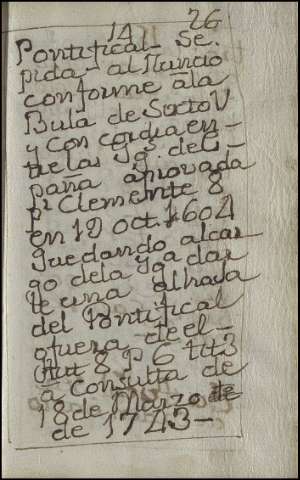 14 26
Pontifical- Se
pida- al Nuncio
conforme ala
Bula de Sixto V
y Concordia en-
tre las Yg.ª de Es-
paña aprovada
pr Clemente 8
en 19 oct. 1604
quedando alcar
go dela Yga dar
le una alhaja
del Pontifical
o fuera- de el-
Aut 8 P 6 tit3
ã consulta de
18 de Marzo de
de 1743-